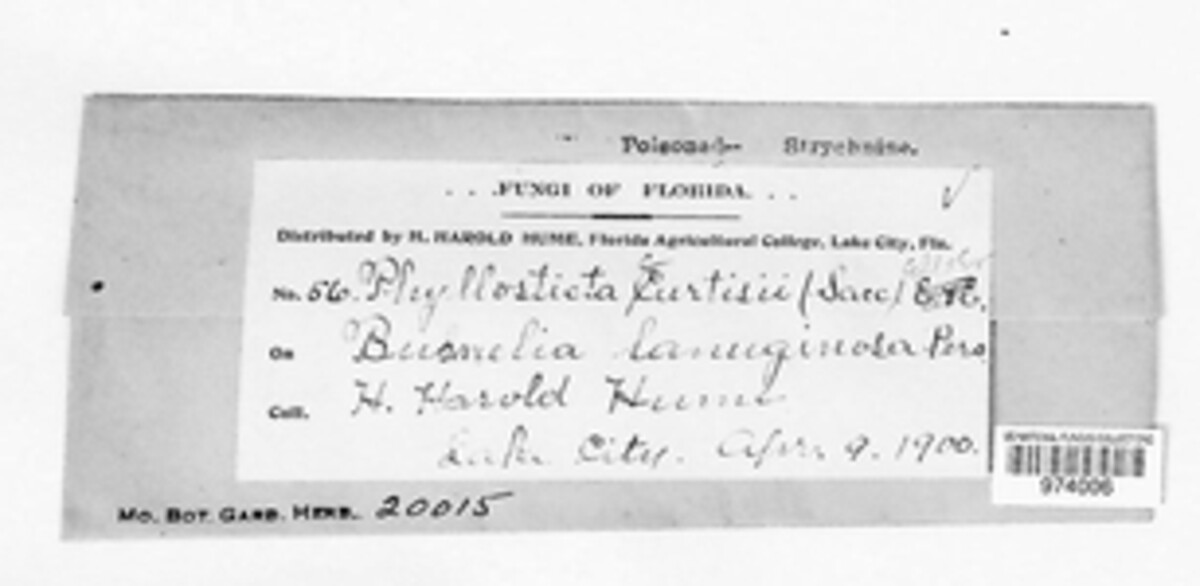 Poisoned-- Strychnine.
. . .FUNGI OF FLORIDA. . .
Distributed by H. HAROLD HUME, Florida Agricultural College, Lake City, Fla.
No. 56. Phyllosticta Curtisii (Sacc)
On Bumelia lanuginosa Pers
Coll. H. Harold Hume
Lake City. Apr. 9. 1900.
974006
MO. BOT. GARD. HERB. 20015